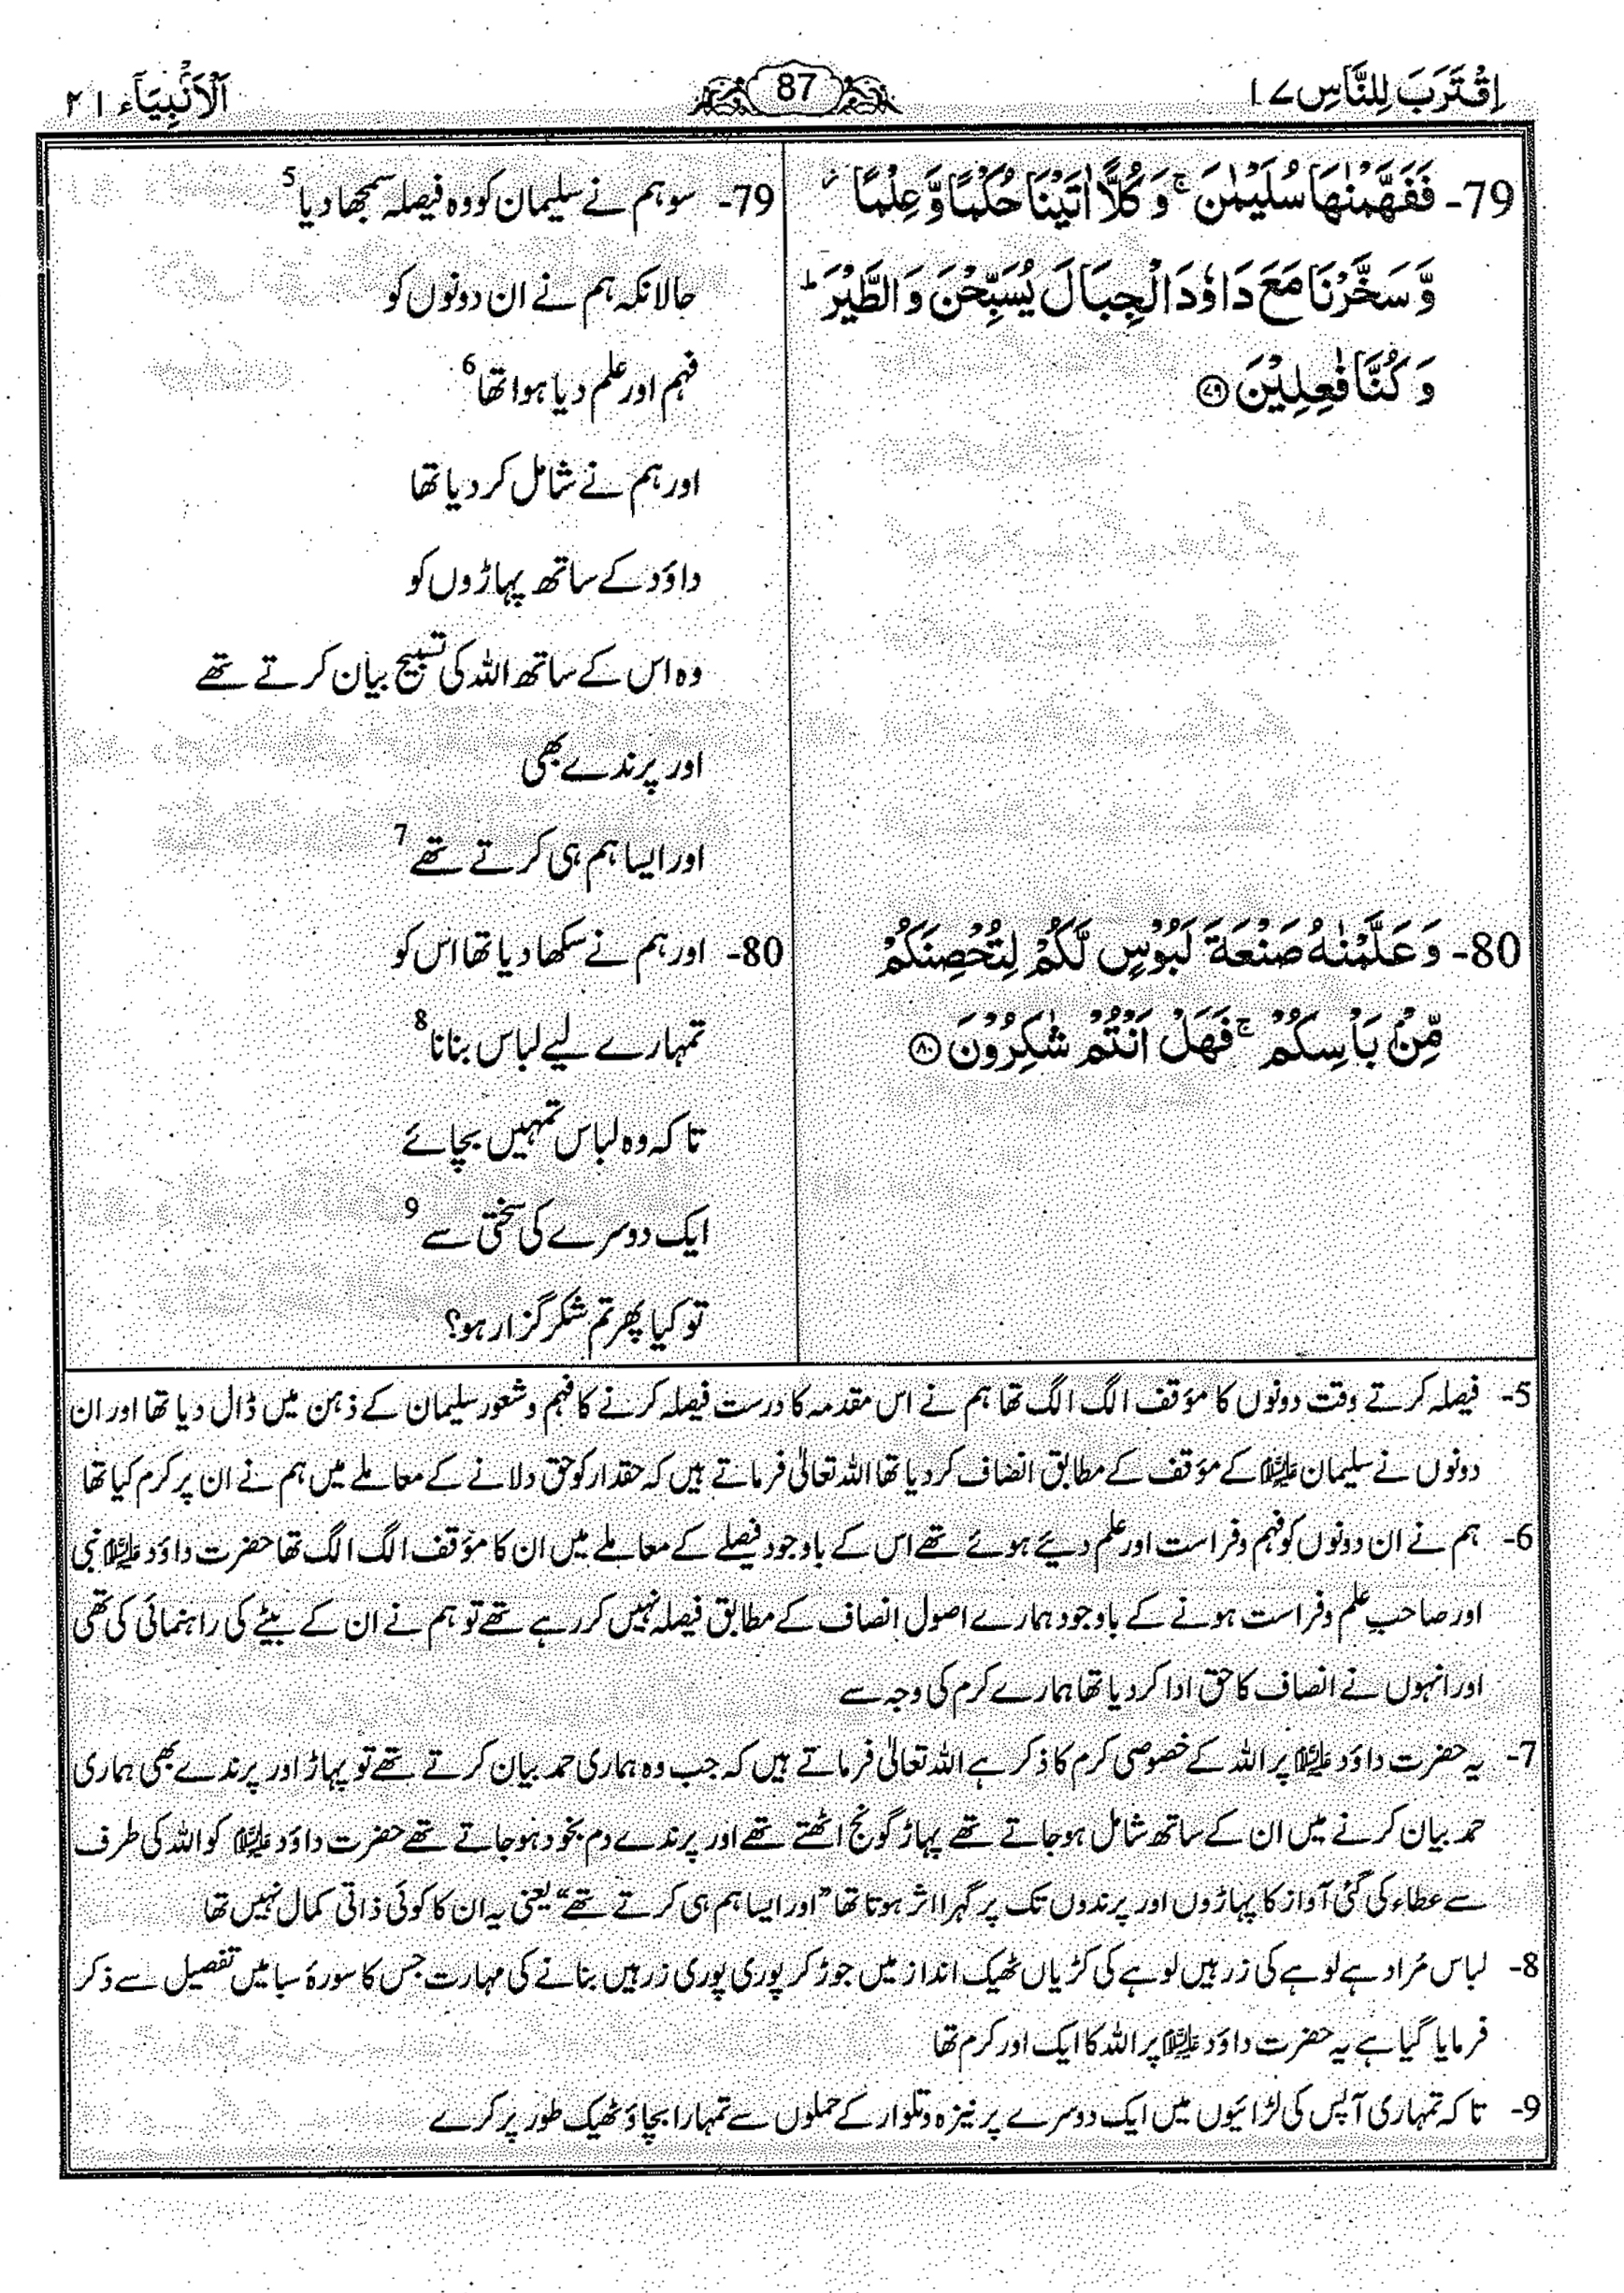 اِقْتَرَبَ لِلنَّاسِ ۱۷
87
اَلْاَنْۢبِيَآء ۲۱
79- فَفَهَّمْنٰهَا سُلَيْمٰنَ ۚ وَ كُلًّا اٰتَيْنَا حُكْمًا وَّ عِلْمًا ۡ
وَّ سَخَّرْنَا مَعَ دَاوٗدَ الْجِبَالَ يُسَبِّحْنَ وَ الطَّيْرَ ؕ
وَ كُنَّا فٰعِلِيْنَ ۝۷۹
80- وَ عَلَّمْنٰهُ صَنْعَةَ لَبُوْسٍ لَّكُمْ لِتُحْصِنَكُمْ
مِّنْۢ بَاْسِكُمْ ۚ فَهَلْ اَنْتُمْ شٰكِرُوْنَ ۝۸۰
79- سو ہم نے سلیمان کو وہ فیصلہ سمجھا دیا 5
حالانکہ ہم نے ان دونوں کو
فہم اور علم دیا ہوا تھا 6
اور ہم نے شامل کر دیا تھا
داؤد کے ساتھ پہاڑوں کو
وہ اس کے ساتھ اللہ کی تسبیح بیان کرتے تھے
اور پرندے بھی
اور ایسا ہم ہی کرتے تھے 7
80- اور ہم نے سکھا دیا تھا اس کو
تمہارے لیے لباس بنانا 8
تا کہ وہ لباس تمہیں بچائے
ایک دوسرے کی سختی سے 9
تو کیا پھر تم شکر گزار ہو؟
5- فیصلہ کرتے وقت دونوں کا مؤقف الگ الگ تھا ہم نے اس مقدمہ کا درست فیصلہ کرنے کا فہم و شعور سلیمان کے ذہن میں ڈال دیا تھا اور ان
دونوں نے سلیمان علیہ السلام کے مؤقف کے مطابق انصاف کر دیا تھا اللہ تعالیٰ فرماتے ہیں کہ حقدار کو حق دلانے کے معاملے میں ہم نے ان پر کرم کیا تھا
6- ہم نے ان دونوں کو فہم و فراست اور علم دیئے ہوئے تھے اس کے باوجود فیصلے کے معاملے میں ان کا مؤقف الگ الگ تھا حضرت داؤد علیہ السلام نبی
اور صاحبِ علم و فراست ہونے کے باوجود ہمارے اصول انصاف کے مطابق فیصلہ نہیں کر رہے تھے تو ہم نے ان کے بیٹے کی راہنمائی کی تھی
اور انہوں نے انصاف کا حق ادا کر دیا تھا ہمارے کرم کی وجہ سے
7- یہ حضرت داؤد علیہ السلام پر اللہ کے خصوصی کرم کا ذکر ہے اللہ تعالیٰ فرماتے ہیں کہ جب وہ ہماری حمد بیان کرتے تھے تو پہاڑ اور پرندے بھی ہماری
حمد بیان کرنے میں ان کے ساتھ شامل ہو جاتے تھے پہاڑ گونج اٹھتے تھے اور پرندے دم بخود ہو جاتے تھے حضرت داؤد علیہ السلام کو اللہ کی طرف
سے عطاء کی گئی آواز کا پہاڑوں اور پرندوں تک پر گہرا اثر ہوتا تھا ”اور ایسا ہم ہی کرتے تھے“ یعنی یہ ان کا کوئی ذاتی کمال نہیں تھا
8- لباس مُراد ہے لوہے کی زرہیں لوہے کی کڑیاں ٹھیک انداز میں جوڑ کر پوری پوری زرہیں بنانے کی مہارت جس کا سورۂ سبا میں تفصیل سے ذکر
فرمایا گیا ہے یہ حضرت داؤد علیہ السلام پر اللہ کا ایک اور کرم تھا
9- تا کہ تمہاری آپس کی لڑائیوں میں ایک دوسرے پر نیزہ و تلوار کے حملوں سے تمہارا بچاؤ ٹھیک طور پر کرے